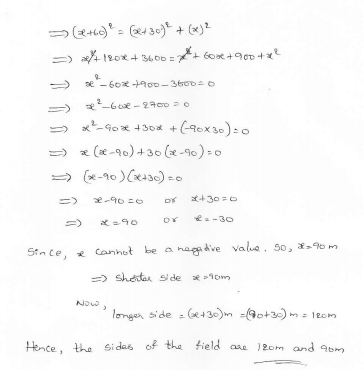 ⇒ (x+60)² = (x+30)² + (x)²
⇒ x²+120x+3600 = x²+60x+900+x²
⇒ x²-60x+900-3600=0
⇒ x²-60x-2700=0
⇒ x²-90x+30x+(-90x30)=0
⇒ x(x-90)+30(x-90)=0
⇒ (x-90)(x+30)=0
⇒ x-90=0 or x+30=0
⇒ x=90 or x=-30
Since, x cannot be a negative value. so, x=90m
⇒ shorter side x=90m
Now,
longer side = (x+30)m =(90+30)m = 120m
Hence, the sides of the field are 120m and 90m